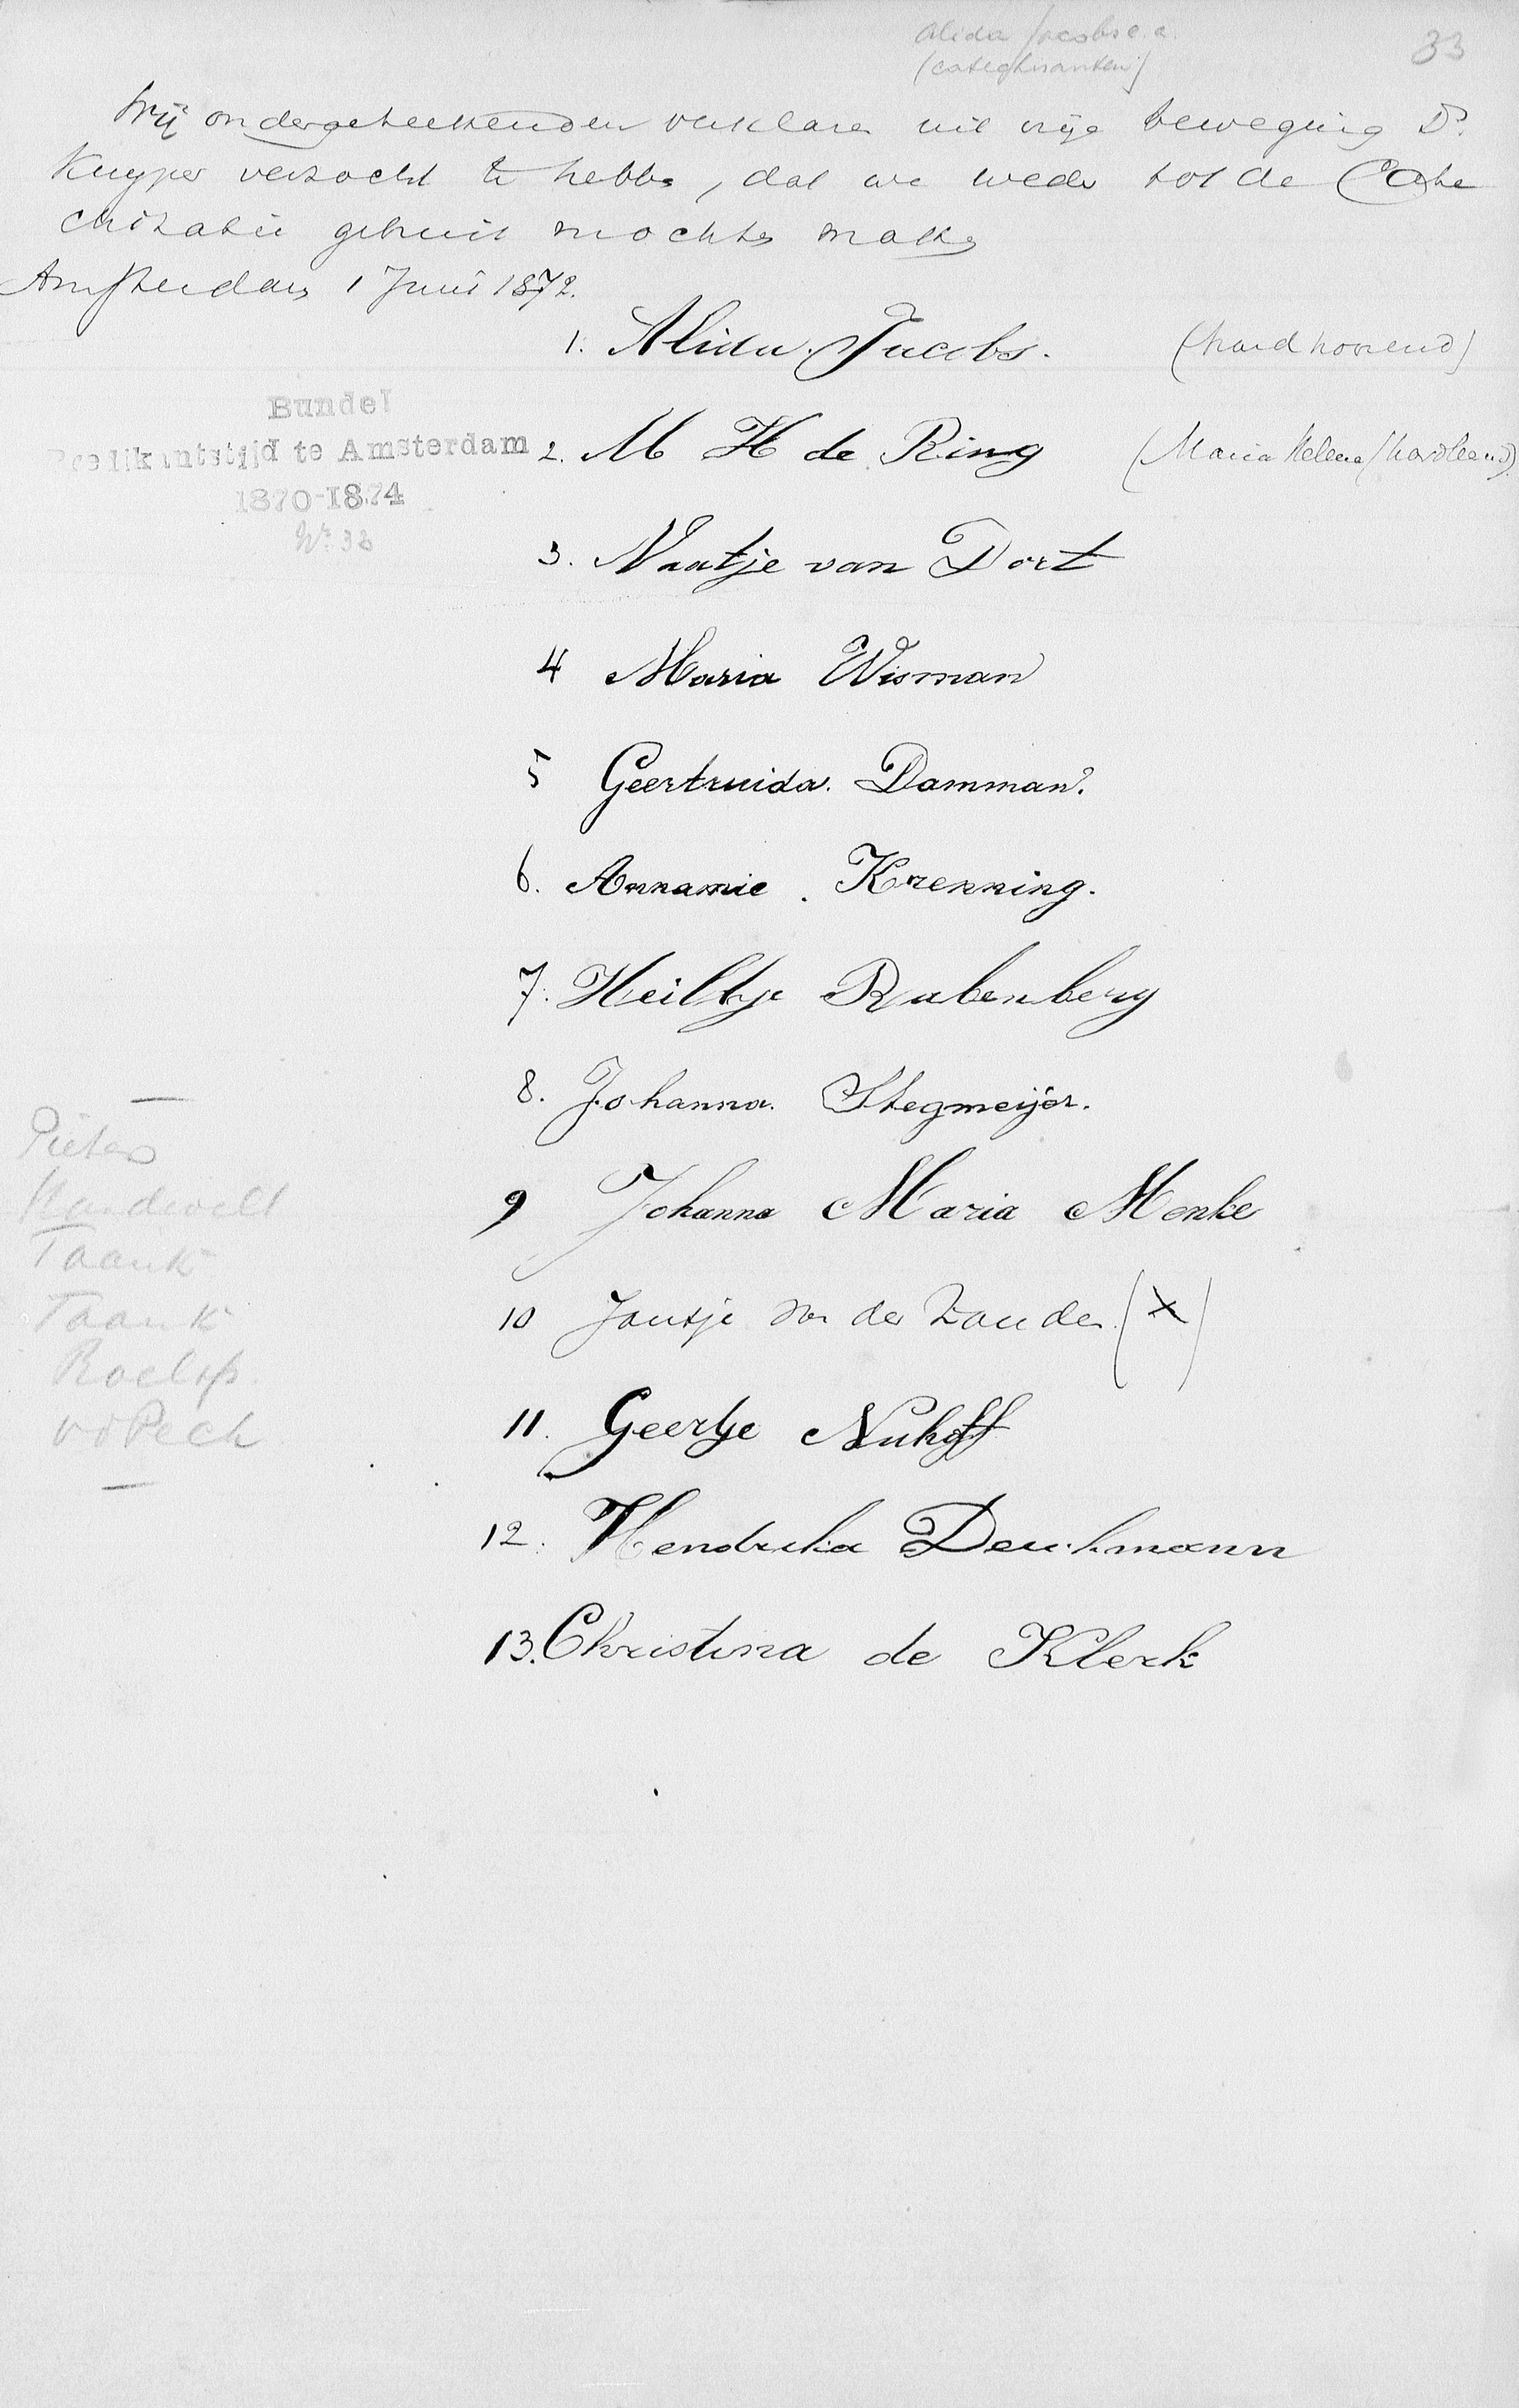 Alida Jacobs e.a.
(catechisanten)
33
Wij ondergeteekenden verklaren uit vrije beweging Dr.
Kuyper verzocht te hebben, dat we weder tot de Cate
chisatie gebruik mochten maken
Amsterdam 1 Juni 1872.
1. Alida Jacobs. (hardhoorend)
Bundel
Predikantstijd te Amsterdam
1870-1874
No. 33
2. M H de Ring (Maria Helena / hardleerend)
3. Naatje van Dort
4 Maria Wisman
5 Geertruida. Damman.
6. Annamie. Krenning.
7. Heiltje Rabenberg
8. Johanna. Stegmeijer.
9 Johanna Maria Menke
10 Jantje v. der Zanden (X)
11. Geertje Nuhoff
12. Hendrika Deuchmann
13. Christina de Klerk
Pieters
Mandevelt
Taank
Taank
Roelofs.
vd Pech